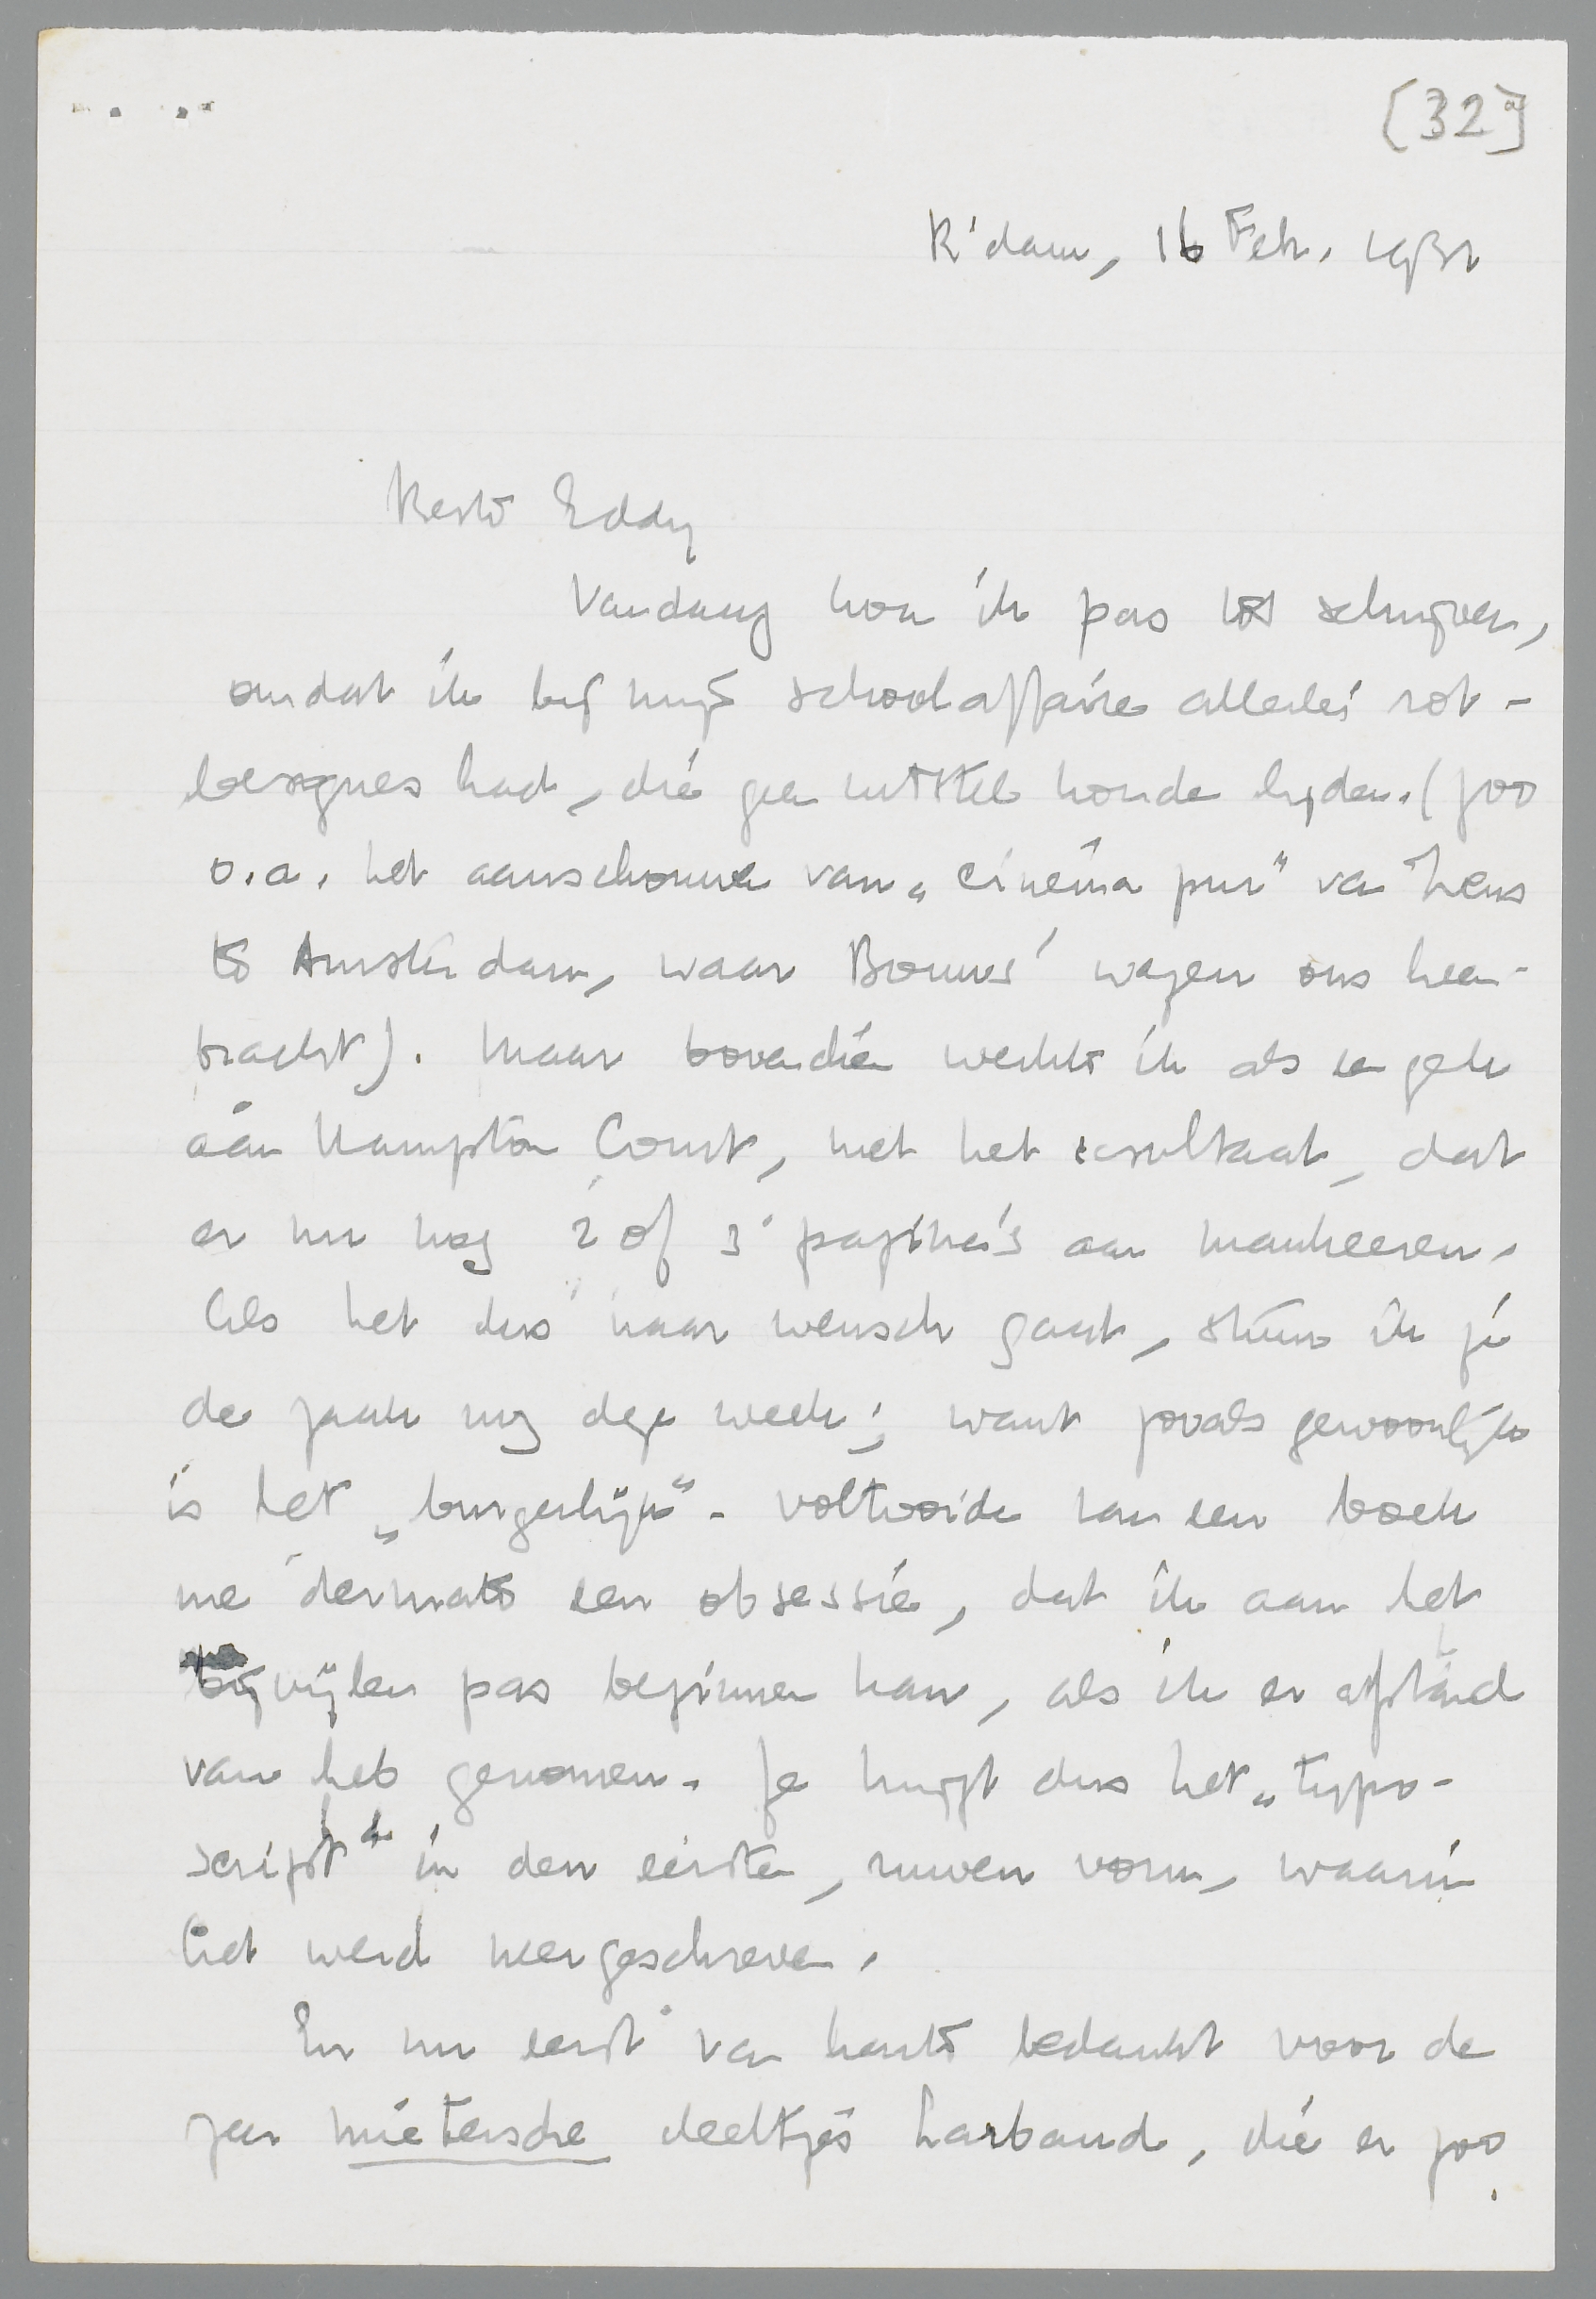 [32a]
R'dam, 16 Feb. 1931
Beste Eddy
Vandaag kom ik pas tot schrijven,
omdat ik bij mijn schoolaffaire allerlei rot-
besognes had, die geen uitstel konden lijden. (zoo
o.a. het aanschouwen van „cinéma pur" van Ter
te Amsterdam, waar Bouws' wagen ons heen-
bracht). Maar bovendien werkte ik als een gek
aan Hampton Court, met het resultaat, dat
er nu nog 2 of 3 pagina's aan mankeeren.
Als het dus naar wensch gaat, stuur ik je
de zaak nog deze week; want zooals gewoonlijk
is het „burgerlijk"-voltooide van een boek
me dermate een obsessie, dat ik aan het
bijvijlen pas beginnen kan, als ik er afstand
van heb genomen. Je krijgt dus het „typo-
script" in den eersten, ruwen vorm, waarin
het werd neergeschreven.
En nu eerst van harte bedankt voor de
zes mietersche deeltjes Larbaud, die er zoo